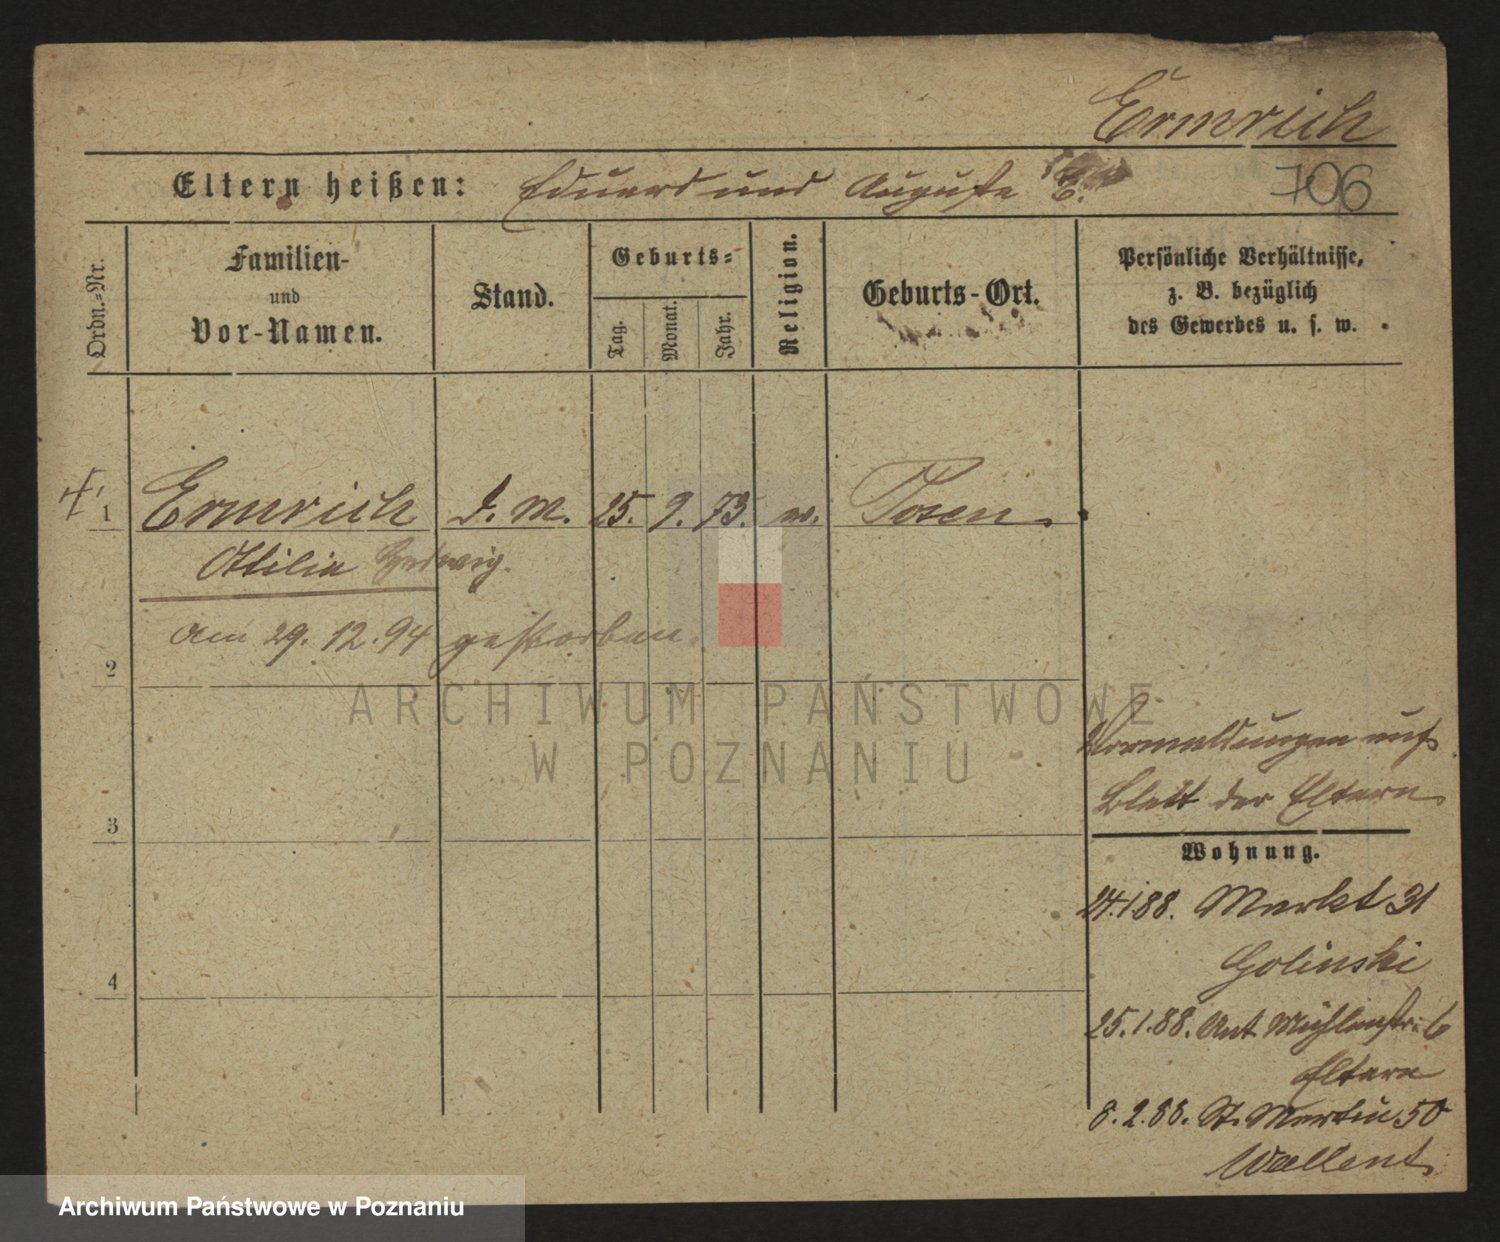 Ermrich
Eltern heißen: Eduard und Auguste
706
Ordn.=Nr.
Familien-
und
Vor-Namen.
Stand.
Geburts=
Tag.
Monat.
Jahr.
Religion.
Geburts-Ort.
Persönliche Verhältnisse,
z. B. bezüglich
des Gewerbes u. s. w.
1 Ermrich D. M. 25. 9. 73. Posen
Ottilie Hedwig.
am 29. 12. 94 gestorben.
2
ARCHIWUM PAŃSTWOWE
W POZNANIU
Vermeldungen auf
Blatt der Eltern
3
Wohnung.
24.1.88. Markt 31
Golinski
4
25.1.88. Unt. Mühlenstr. 6
Eltern
8.2.88. St. Martin 50
Wallent
Archiwum Państwowe w Poznaniu